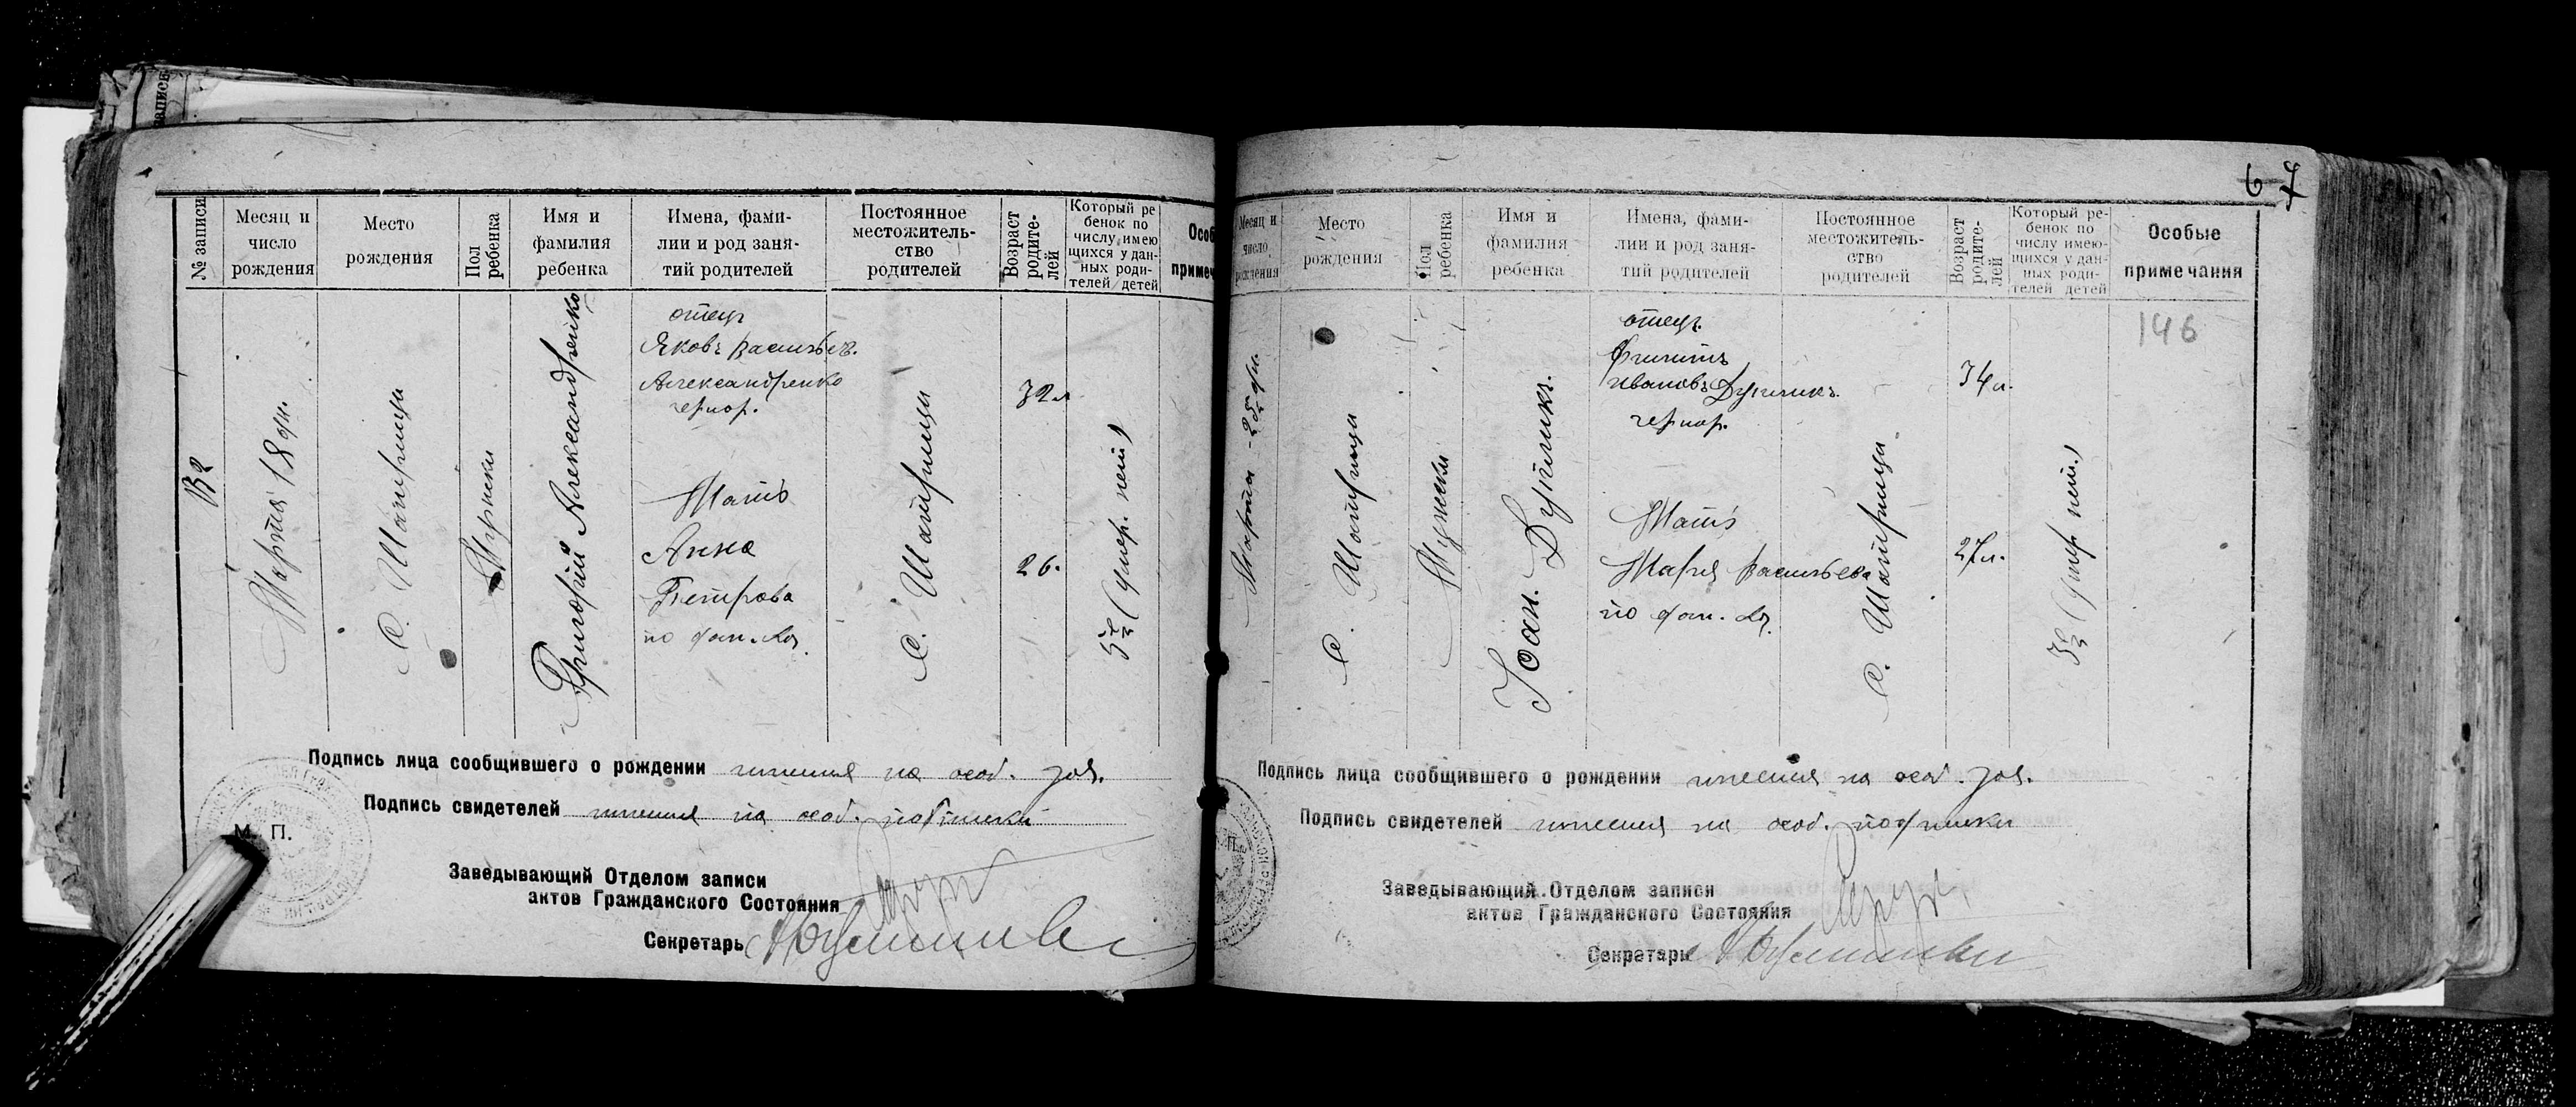 № записи
Месяц и
число
рождения
Место
рождения
Пол
ребенка
Имя и
фамилия
ребенка
Имена, фами-
лии и род заня-
тий родителей
Постоянное
местожитель-
ство
родителей
Возраст
родите-
лей
Который ре
бенок по
числу имею
щихся у дан-
ных роди-
телей детей
Особ
примеч
132
Марта 18 дн.
С. Шатрищи
Мужски
Григорий Александренко
отец
Яковъ Васильев.
Александренко
чернор.
Мать
Анна
Петрова
по фам.
С. Шатрищи
32 л
26.
5й (умер. нет)
Подпись лица сообщившего о рождении имеется на особ.
Подпись свидетелей имеется на особ. подписки
М. П.
Заведывающий Отделом записи
актов Гражданского Состояния
Секретарь
6
Месяц и
число
рождения
Место
рождения
Пол
ребенка
Имя и
фамилия
ребенка
Имена, фами-
лии и род заня-
тий родителей
Постоянное
местожитель-
ство
родителей
Возраст
родите-
лей
Который ре-
бенок по
числу имею-
щихся у дан-
ных роди-
телей детей
Особые
примечания
146
Марта - 25 дн.
С. Шатрищи
Мужски
Іоан.
отец.
Филиппъ
Ивановъ
чернор.
Мать
Мария Васильева
по фам.
С. Шатрищи
34 л.
27 л.
3й (умер. нет.)
Подпись лица сообщившего о рождении имеется на особ.
Подпись свидетелей имеется на особ. подписки
П.
Заведывающий Отделом записи
актов Гражданского Состояния
Секретарь